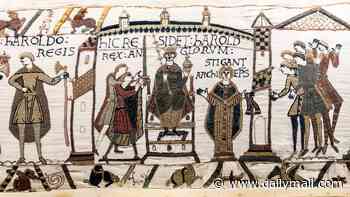 HAROLDO:
REGIS
HIC RE
REX: AN
SIDET: hAROLD
GLORUM:
STIGANT
ARChI EPS
www.dailymail.com